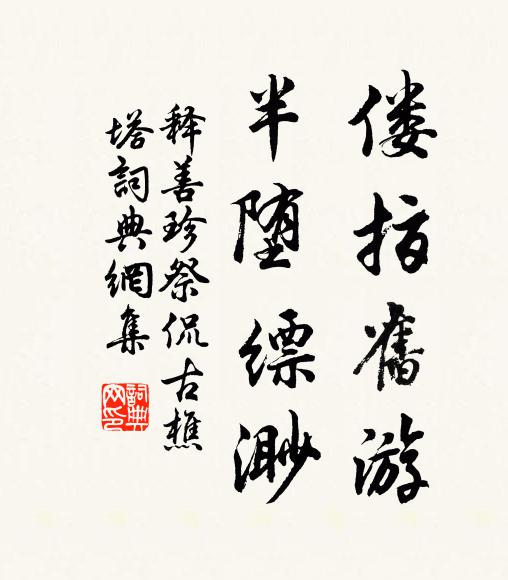 僂指舊游
半堕縹渺
释善珍祭侃古樵
塔詞典網集
詞典
网印